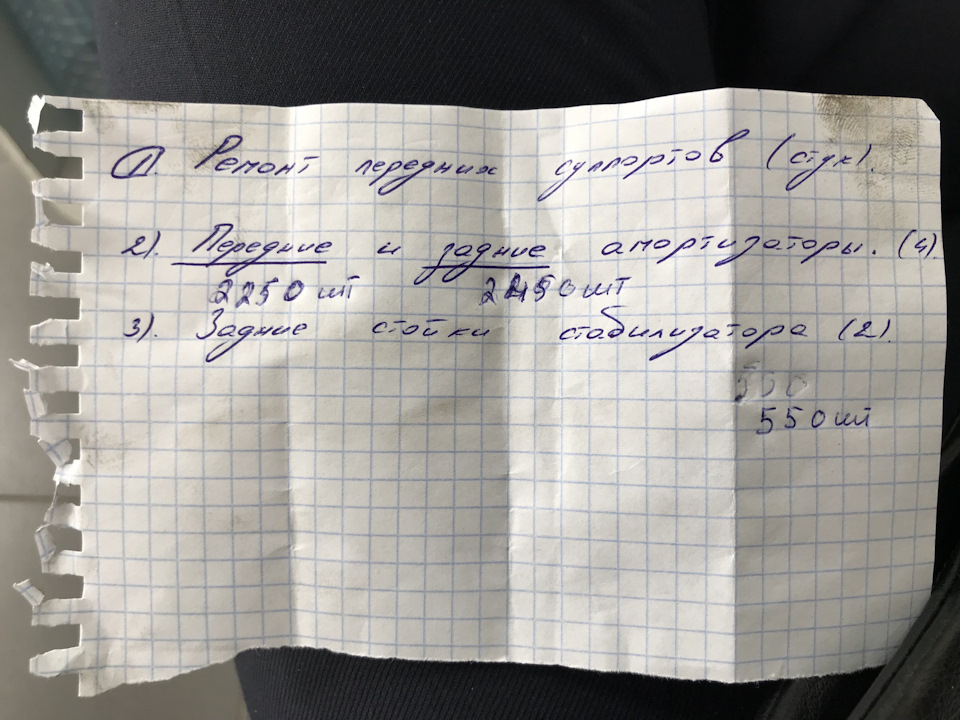 1). Ремонт передних суппортов (стук).
2). Передние и задние амортизаторы. (4).
2250 шт 2450 шт
3). Задние стойки стабилизатора (2).
550
550 шт